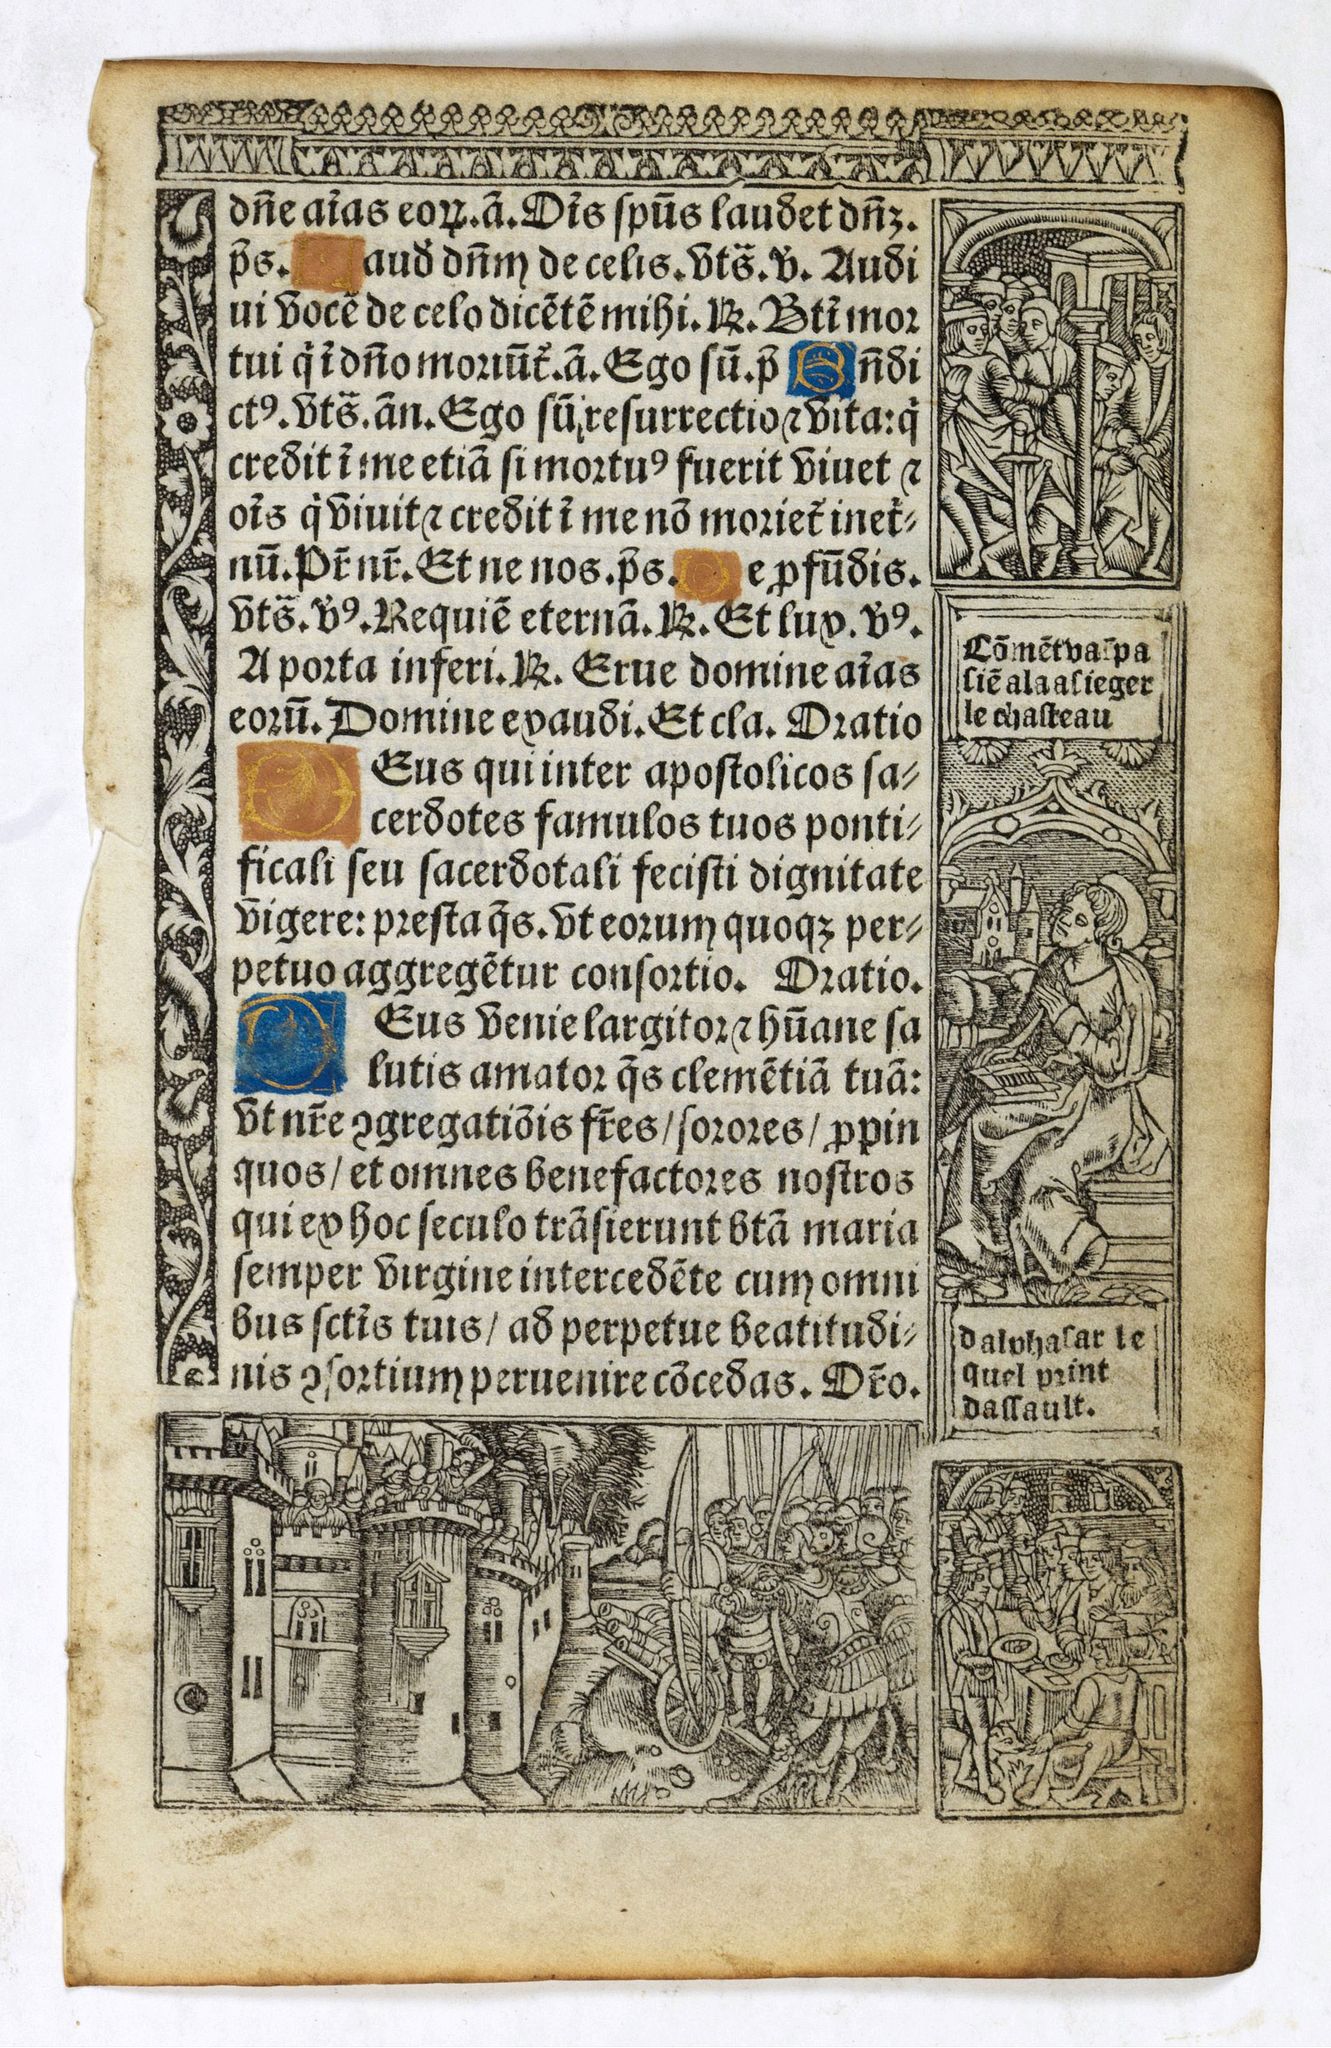 dn̄e aīas eoꝝ. ā. Oīs spūs laudet dn̄ꝫ.
p̄s. aud dn̄m de celis. vts̄. v. Audi
ui vocē de celo dicētē mihi. ℞. Btī mor
tui q̄ ī dn̄o moriūt̄. ā. Ego sū. p̄ Bn̄di
ctꝰ. vts̄. ān. Ego sū resurrectio ⁊ vita: q̄
credit ī me etiā si mortuꝰ fuerit viuet ⁊
oīs q̄ viuit ⁊ credit ī me nō moriet̄ in et̄⸗
nū. Pr̄ nr̄. Et ne nos. p̄s. De ꝓfūdis.
vts̄. vꝰ. Requiē eternā. ℞. Et lux. vꝰ.
A porta inferi. ℞. Erue domine aīas
eorū. Domine exaudi. Et cla. Oratio
DEus qui inter apostolicos sa⸗
cerdotes famulos tuos ponti⸗
ficali seu sacerdotali fecisti dignitate
vigere: presta q̄s. vt eorum quoqꝫ per⸗
petuo aggregētur consortio. Oratio.
DEus venie largitor ⁊ hūane sa
lutis amator q̄s clemētiā tuā:
vt nr̄e ꝯgregatiōis fr̄es / sorores / ꝓpin
quos / et omnes benefactores nostros
qui ex hoc seculo trāsierunt btā maria
semper virgine intercedēte cum omni
bus sctīs tuis / ad perpetue beatitudi⸗
nis ꝯsortium peruenire cōcedas. Or̄o.
Cōmēt vaspa
siē ala asieger
le chasteau
dalphasar le
quel print
dassault.